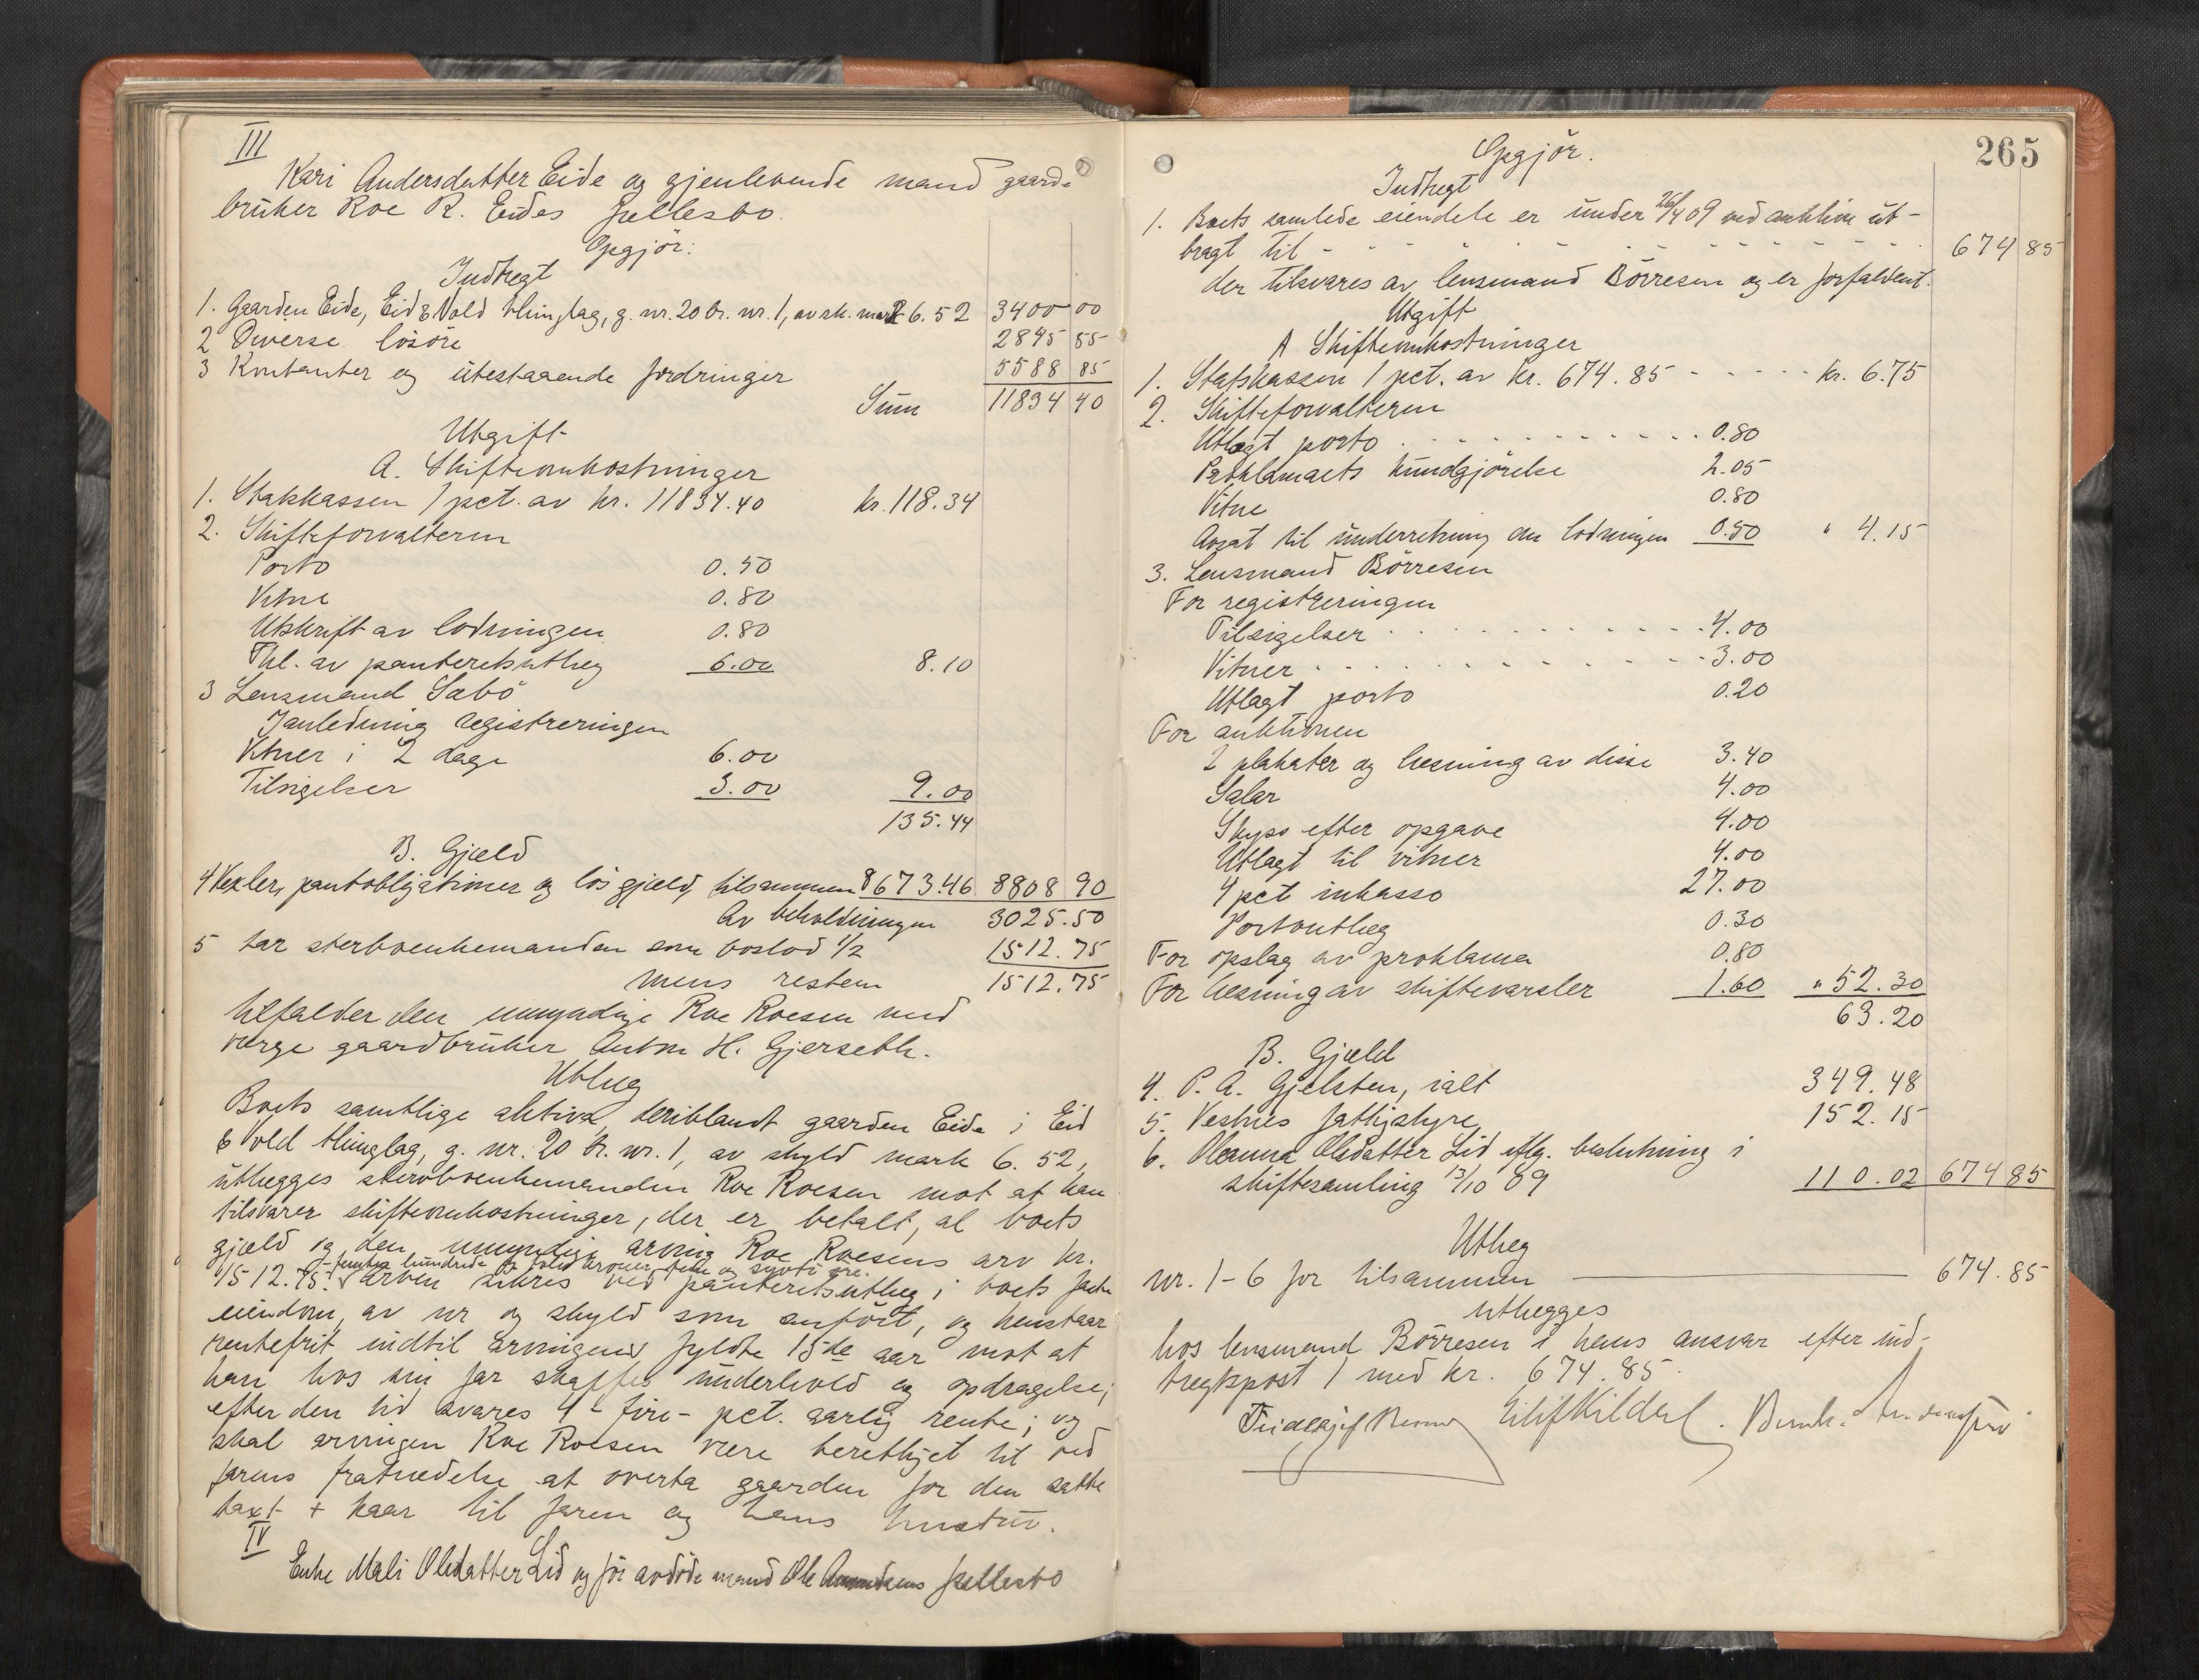 III
Kari Andersdatter Eide og gjenlevende mand gaard-
bruker Roe R. Eides fellesbo.
Opgjör:
Indtegt
1. Gaarden Eide, Eid & Vold thinglag, g. nr. 20 br. nr. 1, av sk. mark 6.52 3400 00
2 Diverse lösöre 2845 55
3 Kontanter og utestaaende fordringer 5588 85
Sum 11834 40
Utgift
A. Skifteomkostninger
1. Statskassen 1 pct. av kr. 11834.40 kr. 118.34
2. Skifteforvalteren
Porto 0.50
Vitne 0.80
Utskrift av lodningen 0.80
Thl. av panteretsutlæg 6.00 8.10
3 Lensmand Sæbö
I anledning registreringen
Vitner i 2 dage 6.00
Tilsigelser 3.00 9.00
135.44
B. Gjæld
4 Vexler, pantobligationer og lös gjæld, tilsammen 8673.46 8808 90
Av beholdningen 3025.50
5 tar sterboenkemanden som boslod 1/2 1512.75
mens resten 1512.75
tilfalder den umyndige Roe Roesen med
verge gaardbruker Anton H. Gjerseth.
Utlæg
Boets samtlige aktiva, deriblandt gaarden Eide i Eid
& Vold thinglag, g. nr. 20 br. nr. 1, av skyld mark 6.52,
utlægges sterboenkemanden Roe Roesen mot at han
tilsvarer skifteomkostninger, der er betalt, al boets
gjæld og den umyndige arving Roe Roesens arv kr.
1512.75. - femten hundrede og tolv kroner fem og sytti öre. Arven sikres ved panteretsutlæg i boets faste
eiendom, av nr og skyld som anfört, og henstaar
rentefrit indtil arvingens fyldte 15de aar mot at
han hos sin far skaffes underhold og opdragelse;
efter den tid svares 4 - fire - pct. aarlig rente; og
skal arvingen Roe Roesen være berettiget til ved
farens fratrædelse at overta gaarden for den satte
taxt + kaar til faren og hans hustru.
IV
Enke Mali Olsdatter Lid og för avdöde mand Ole Amundsens fellesbo
265
Opgjör.
Indtegt
1. Boets samlede eiendele er under 26/4 09 ved auktion ut-
bragt til 674 85
der tilsvares av lensmand Börresen og er forfaldent.
Utgift
A Skifteomkostninger
1. Statskassen 1 pct. av kr. 674.85 kr. 6.75
2. Skifteforvalteren
Utlagt porto 0.80
Proklamaets kundgjörelse 2.05
Vitne 0.80
Avsat til underretning om lodningen 0.50 " 4.15
3. Lensmand Börresen
For registreringen
Tilsigelser 4.00
Vitner 3.00
Utlagt porto 0.20
For auktionen
2 plakater og læsning av disse 3.40
Salær 4.00
Skyss efter opgave 4.00
Utlagt til vitner 4.00
4 pct inkasso 27.00
Portoutlæg 0.30
For opslag av proklama 0.80
For læsning av skiftevarsler 1.60 " 52.30
63.20
B. Gjæld
4. P. A. Gjelsten, ialt 349.48
5. Vestnes fattigstyre 152.15
6. Oleanna Olsdatter Lid eftg. beslutning i
skiftesamling 13/10 09 110.02 674 85
Utlæg
nr. 1-6 for tilsammen 674.85
utlægges
hos lensmand Börresen i hans ansvar efter ind-
tegtspost 1 med kr. 674.85.